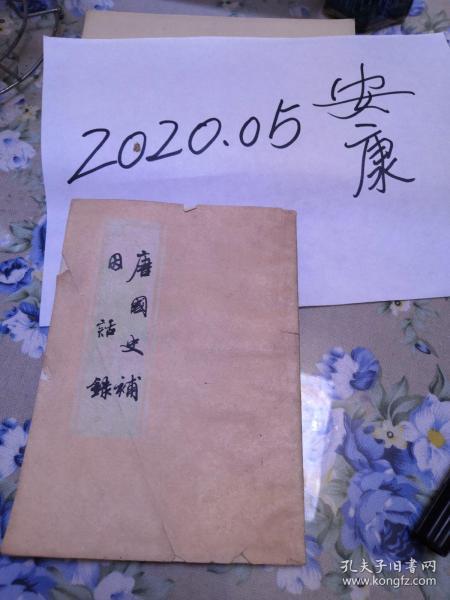 2020.05
安康
唐國史補
因話錄
孔夫子旧书网
www.kongfz.com